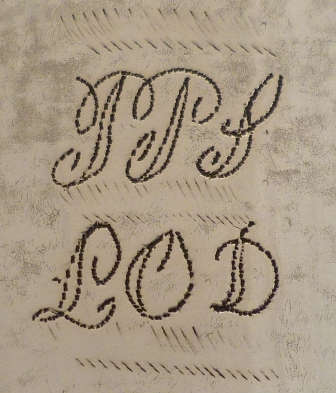 PPS
LOD